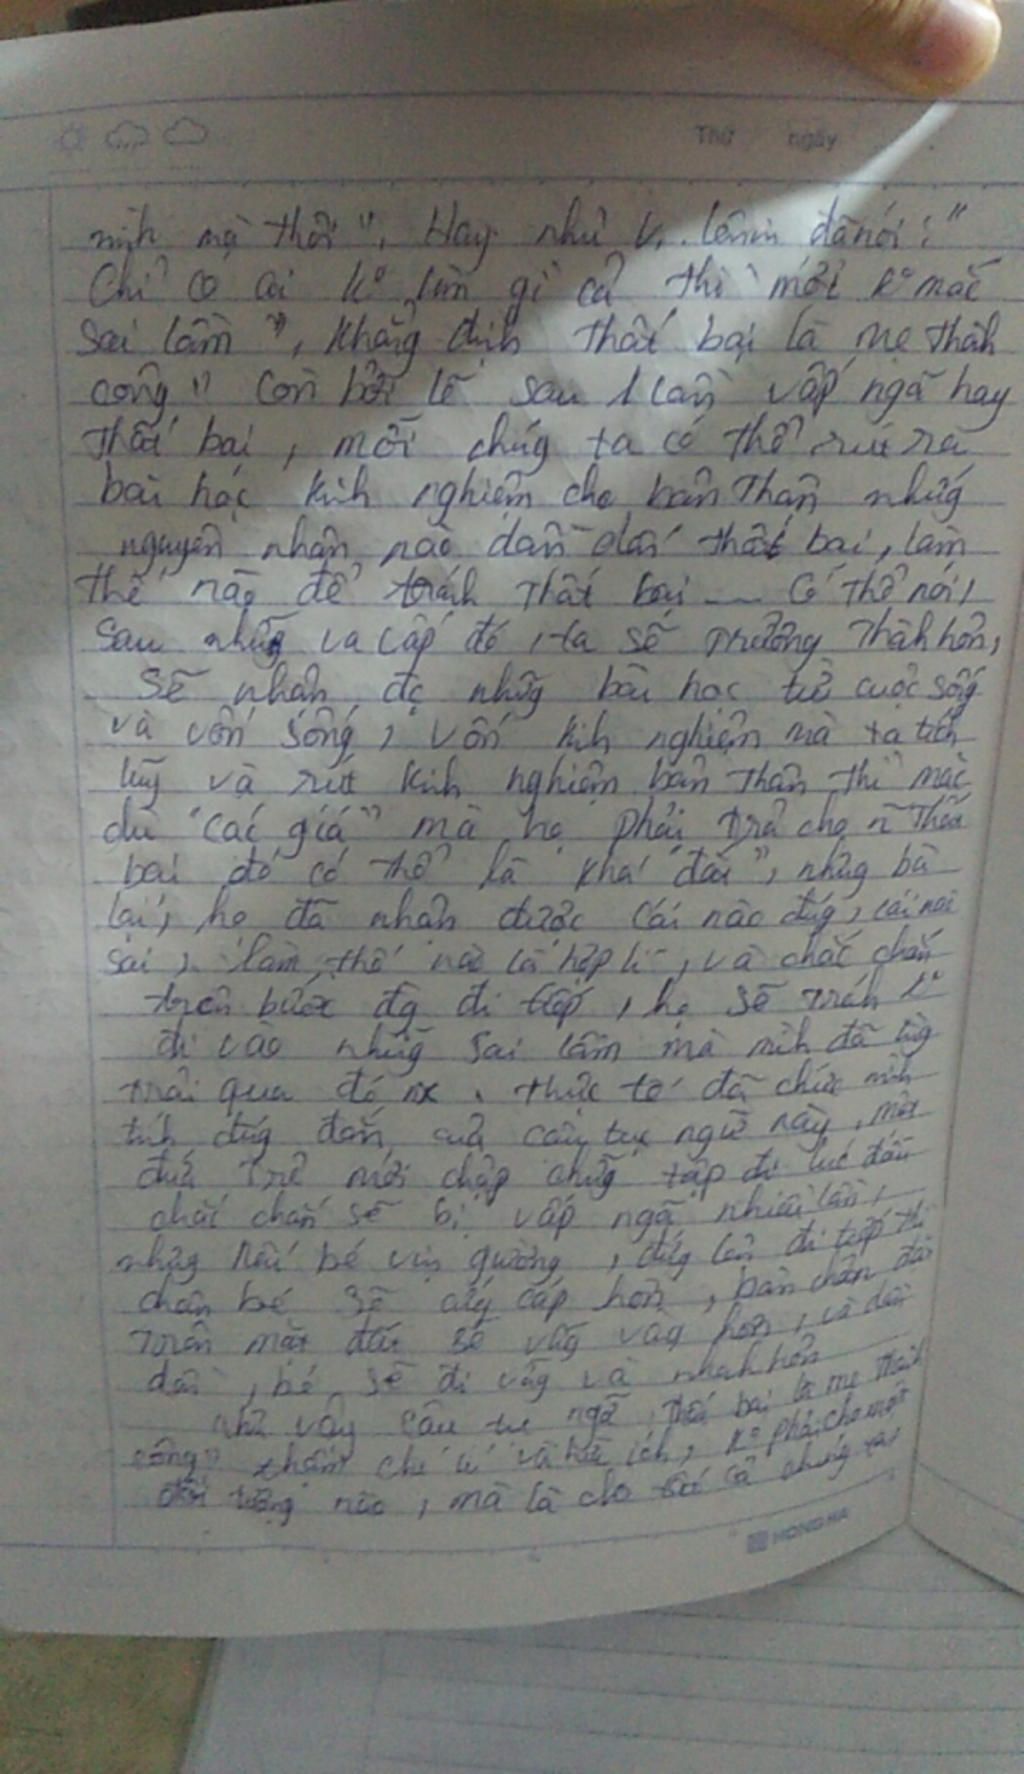 Thứ ngày
mình mà thôi". Hay như V. Lênin đã nói: "
Chỉ có ai k° làm gì cả thì mới k° mắc
sai lầm", khẳng định thất bại là mẹ thành
công" còn bởi lẽ sau 1 lần vấp ngã hay
thất bại, mỗi chúng ta có thể rút ra
bài học kinh nghiệm cho bản thân những
nguyên nhân nào dẫn đến thất bại, làm
thế nào để tránh thất bại ... Có thể nói,
sau những va cấp đó, ta sẽ trưởng thành hơn,
sẽ nhận đc những bài học từ cuộc sống
và vốn sống, vốn kinh nghiệm mà ta tích
lũy và rút kinh nghiệm bản thân thì mặc
dù "cái giá" mà họ phải trả cho n~ thất
bại đó có thể là khá "đắt", nhưng bù
lại, họ đã nhận được cái nào đúng, cái nào
sai, làm thế nào là hợp lí, và chắc chắn
trên bước đg đi tiếp, họ sẽ tránh k°
đi vào những sai lầm mà mình đã từng
trải qua đó nx. Thực tế đã chức minh
tính đúng đắn của câu tục ngữ này, một
đứa trẻ mới chập chững tập đi lúc đầu
chắc chắn sẽ bị vấp ngã nhiều lần,
nhưng nếu bé vịn giường, đứng lên đi tiếp thì
chân bé sẽ cứng cáp hơn, bàn chân
trên mặt đất sẽ vững vàng hơn, và dần
dần, bé sẽ đi vững và nhanh hơn
Như vậy câu tục ngữ, thất bại là mẹ thành
công" thâm chí lí và hữu ích, k° phải cho một
đối tượng nào, mà là cho tất cả chúng ta
HONG HA